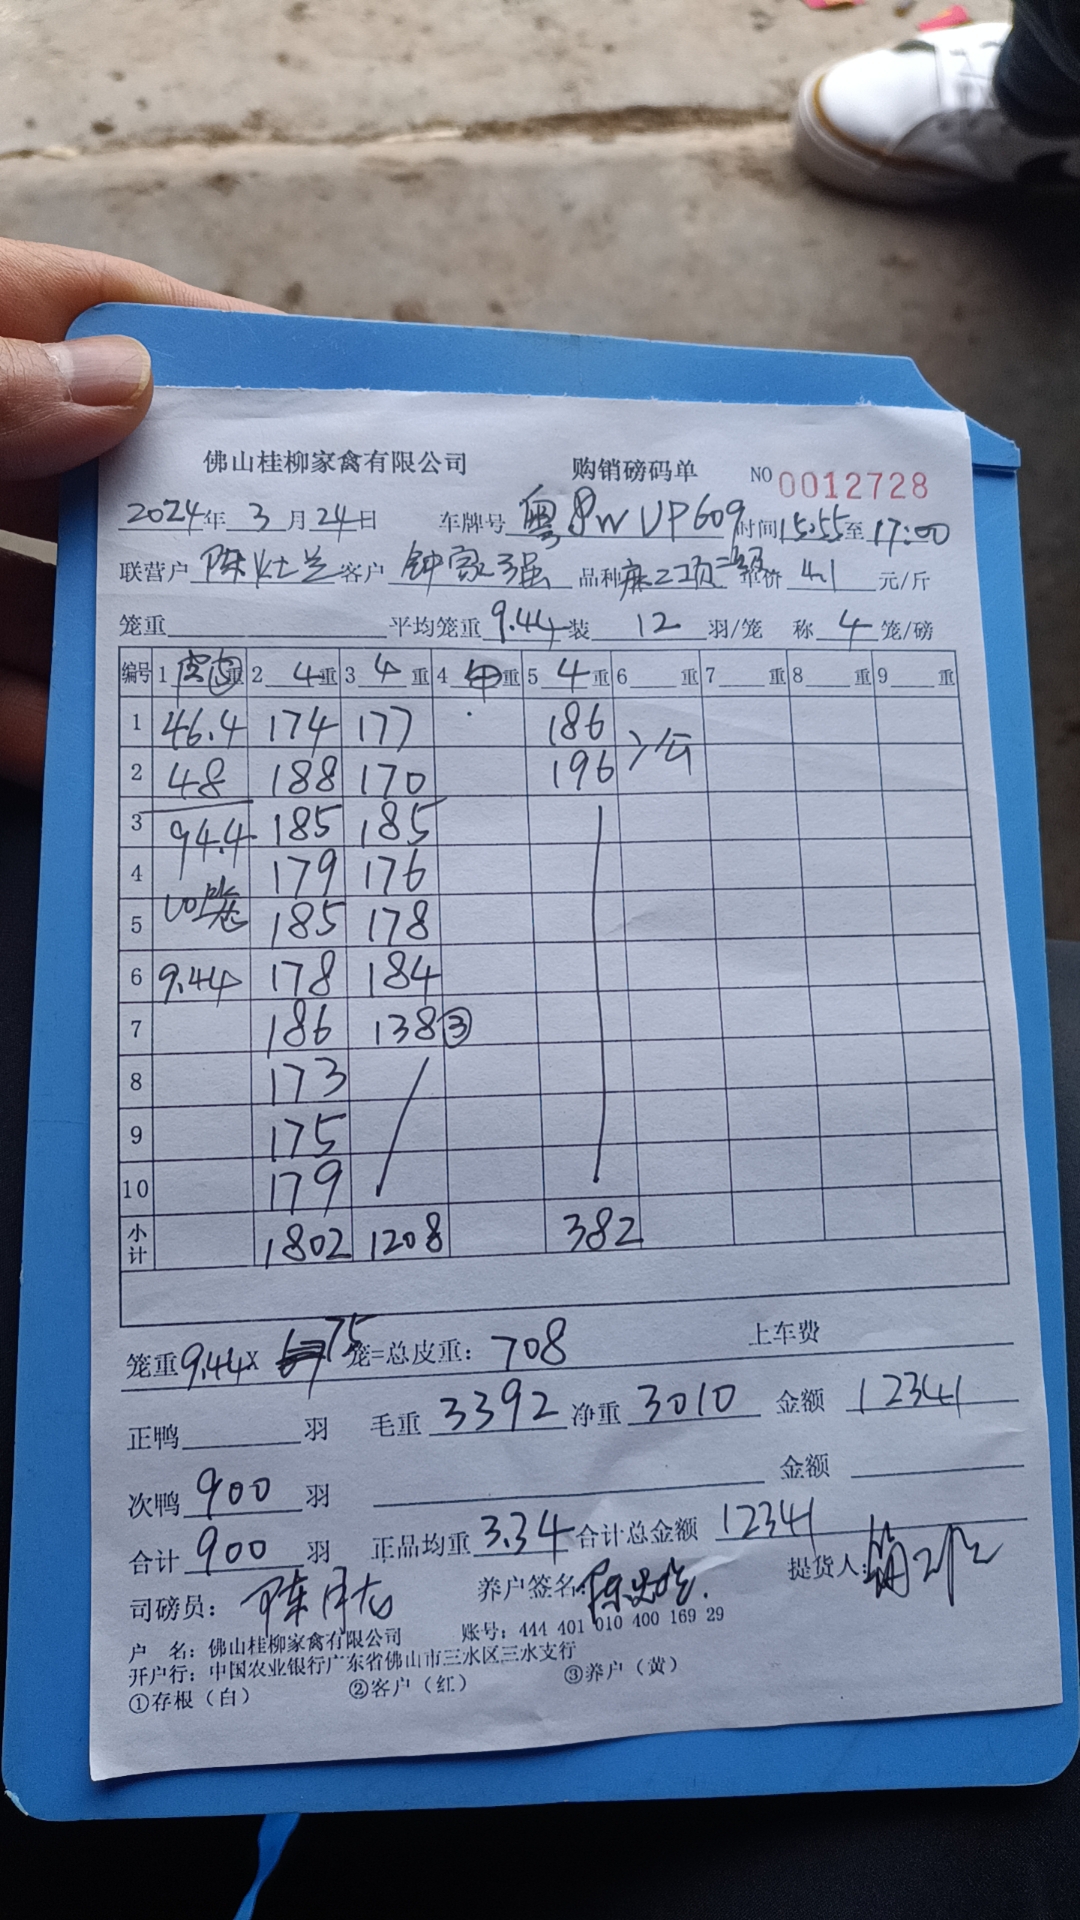 佛山桂柳家禽有限公司 购销磅码单 NO 0012728
2024年 3 月 24日 车牌号 粤 WUP609 时间 15:55 至 17:00
联营户 陈灶兰 客户 钟家强 品种 麻二项二级 单价 4.1 元/斤
笼重 平均笼重 9.44 装 12 羽/笼 称 4 笼/磅
编号 1 皮⑤重 2 4 重 3 4 重 4 重 5 4 重 6 重 7 重 8 重 9 重
1 46.4 174 177 186
2 48 188 170 196 >公
3 94.4 185 185
4 179 176
5 10笼 185 178
6 9.44 178 184
7 186 138③
8 173
9 175
10 179
小计 1802 1208 382
笼重 9.44 x 75 笼=总皮重: 708 上车费
正鸭 羽 毛重 3392 净重 3010 金额 12341
次鸭 900 羽 金额
合计 900 羽 正品均重 3.34 合计总金额 12341
司磅员: 陈 养户签名: 陈 提货人:
户 名: 佛山桂柳家禽有限公司 账号: 444 401 010 400 169 29
开户行: 中国农业银行广东省佛山市三水区三水支行
①存根（白） ②客户（红） ③养户（黄）